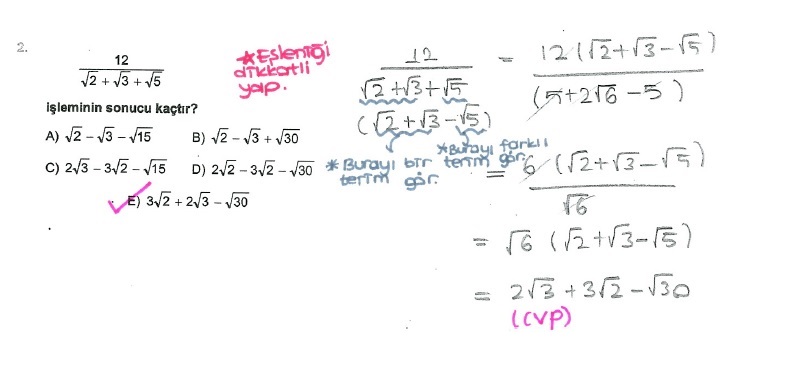 2.
12
√2 + √3 + √5
işleminin sonucu kaçtır?
A) √2 − √3 − √15 B) √2 − √3 + √30
C) 2√3 − 3√2 − √15 D) 2√2 − 3√2 − √30
E) 3√2 + 2√3 − √30
*Eşleniği
dikkatli
yap.
12 = 12(√2+√3−√5)
√2+√3+√5 (5+2√6−5)
(√2+√3−√5)
*Burayı bir
terim gör.
*Burayı farklı
terim gör.
= 6(√2+√3−√5)
√6
= √6 (√2+√3−√5)
= 2√3+3√2−√30
(CVP)